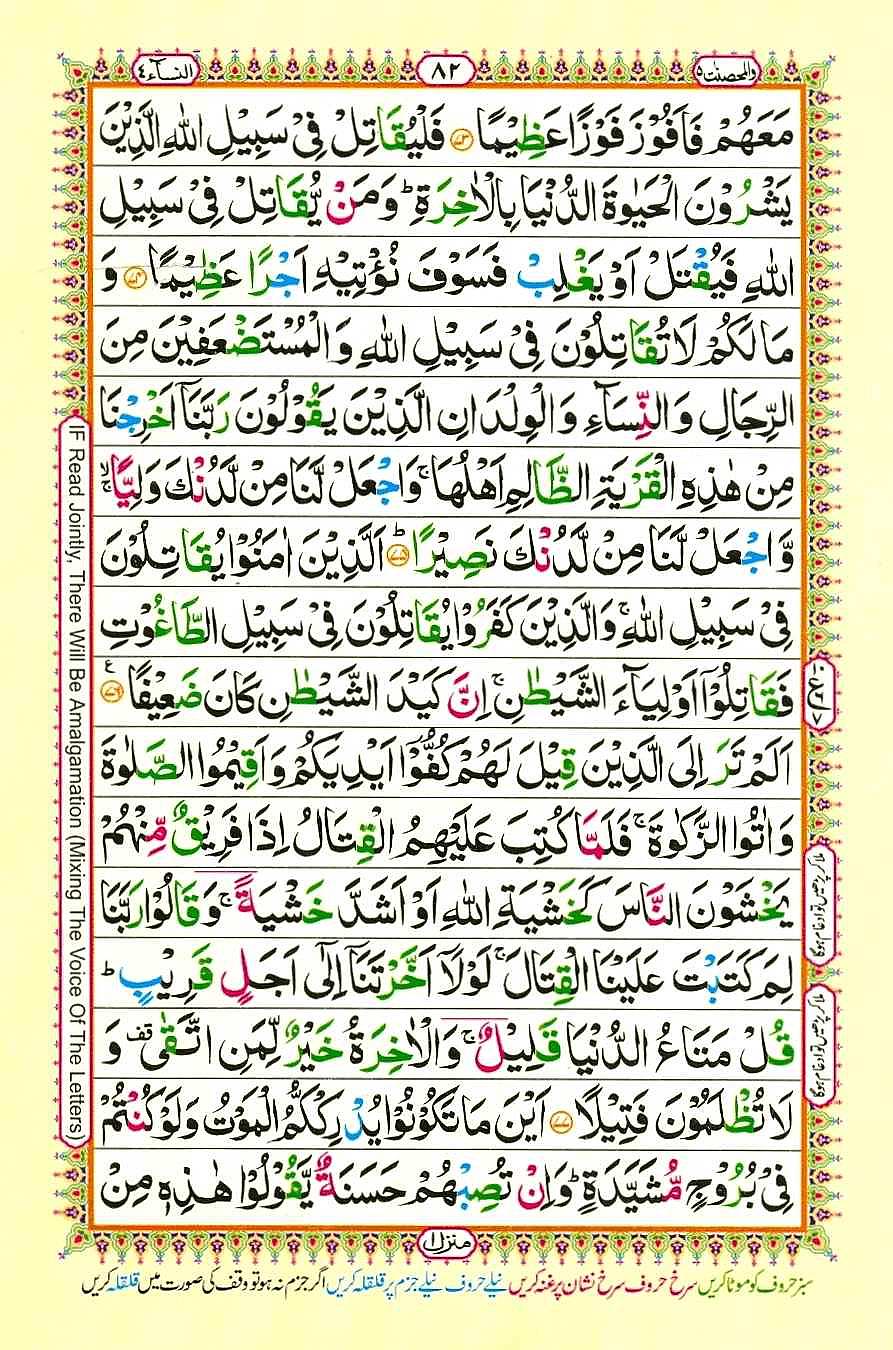 والمحصنت ۵
۸۲
النسآء ۴
مَعَهُمْ فَاَفُوْزَ فَوْزًا عَظِيْمًا ﴿۷۳﴾ فَلْيُقَاتِلْ فِيْ سَبِيْلِ اللّٰهِ الَّذِيْنَ
يَشْرُوْنَ الْحَيٰوةَ الدُّنْيَا بِالْاٰخِرَةِ ؕ وَمَنْ يُّقَاتِلْ فِيْ سَبِيْلِ
اللّٰهِ فَيُقْتَلْ اَوْ يَغْلِبْ فَسَوْفَ نُؤْتِيْهِ اَجْرًا عَظِيْمًا ﴿۷۴﴾ وَ
مَا لَكُمْ لَا تُقَاتِلُوْنَ فِيْ سَبِيْلِ اللّٰهِ وَالْمُسْتَضْعَفِيْنَ مِنَ
الرِّجَالِ وَالنِّسَآءِ وَالْوِلْدَانِ الَّذِيْنَ يَقُوْلُوْنَ رَبَّنَاۤ اَخْرِجْنَا
مِنْ هٰذِهِ الْقَرْيَةِ الظَّالِمِ اَهْلُهَا ۚ وَاجْعَلْ لَّنَا مِنْ لَّدُنْكَ وَلِيًّا ۙۚ
وَّاجْعَلْ لَّنَا مِنْ لَّدُنْكَ نَصِيْرًا ﴿۷۵﴾ؕ اَلَّذِيْنَ اٰمَنُوْا يُقَاتِلُوْنَ
فِيْ سَبِيْلِ اللّٰهِ ۚ وَالَّذِيْنَ كَفَرُوْا يُقَاتِلُوْنَ فِيْ سَبِيْلِ الطَّاغُوْتِ
فَقَاتِلُوْۤا اَوْلِيَآءَ الشَّيْطٰنِ ۚ اِنَّ كَيْدَ الشَّيْطٰنِ كَانَ ضَعِيْفًا ﴿۷۶﴾ ع
اَلَمْ تَرَ اِلَى الَّذِيْنَ قِيْلَ لَهُمْ كُفُّوْۤا اَيْدِيَكُمْ وَاَقِيْمُوا الصَّلٰوةَ
وَاٰتُوا الزَّكٰوةَ ۚ فَلَمَّا كُتِبَ عَلَيْهِمُ الْقِتَالُ اِذَا فَرِيْقٌ مِّنْهُمْ
يَخْشَوْنَ النَّاسَ كَخَشْيَةِ اللّٰهِ اَوْ اَشَدَّ خَشْيَةً ۚ وَقَالُوْا رَبَّنَا
لِمَ كَتَبْتَ عَلَيْنَا الْقِتَالَ ۚ لَوْلَاۤ اَخَّرْتَنَاۤ اِلٰۤى اَجَلٍ قَرِيْبٍ ؕ
قُلْ مَتَاعُ الدُّنْيَا قَلِيْلٌ ۚ وَالْاٰخِرَةُ خَيْرٌ لِّمَنِ اتَّقٰى ۟قف وَ
لَا تُظْلَمُوْنَ فَتِيْلًا ﴿۷۷﴾ اَيْنَ مَا تَكُوْنُوْا يُدْرِكْكُّمُ الْمَوْتُ وَلَوْ كُنْتُمْ
فِيْ بُرُوْجٍ مُّشَيَّدَةٍ ؕ وَاِنْ تُصِبْهُمْ حَسَنَةٌ يَّقُوْلُوْا هٰذِهٖ مِنْ
منزل ۱
سبز حروف کو موٹا کریں سرخ حروف سرخ نشان پر غنہ کریں نیلے حروف نیلے جزم پر قلقلہ کریں اگر جزم نہ ہو تو وقف کی صورت میں قلقلہ کریں
IF Read Jointly, There Will Be Amalgamation (Mixing The Voice Of The Letters)
ملا کر پڑھیں تو ادغام ہوگا
ملا کر پڑھیں تو ادغام ہوگا